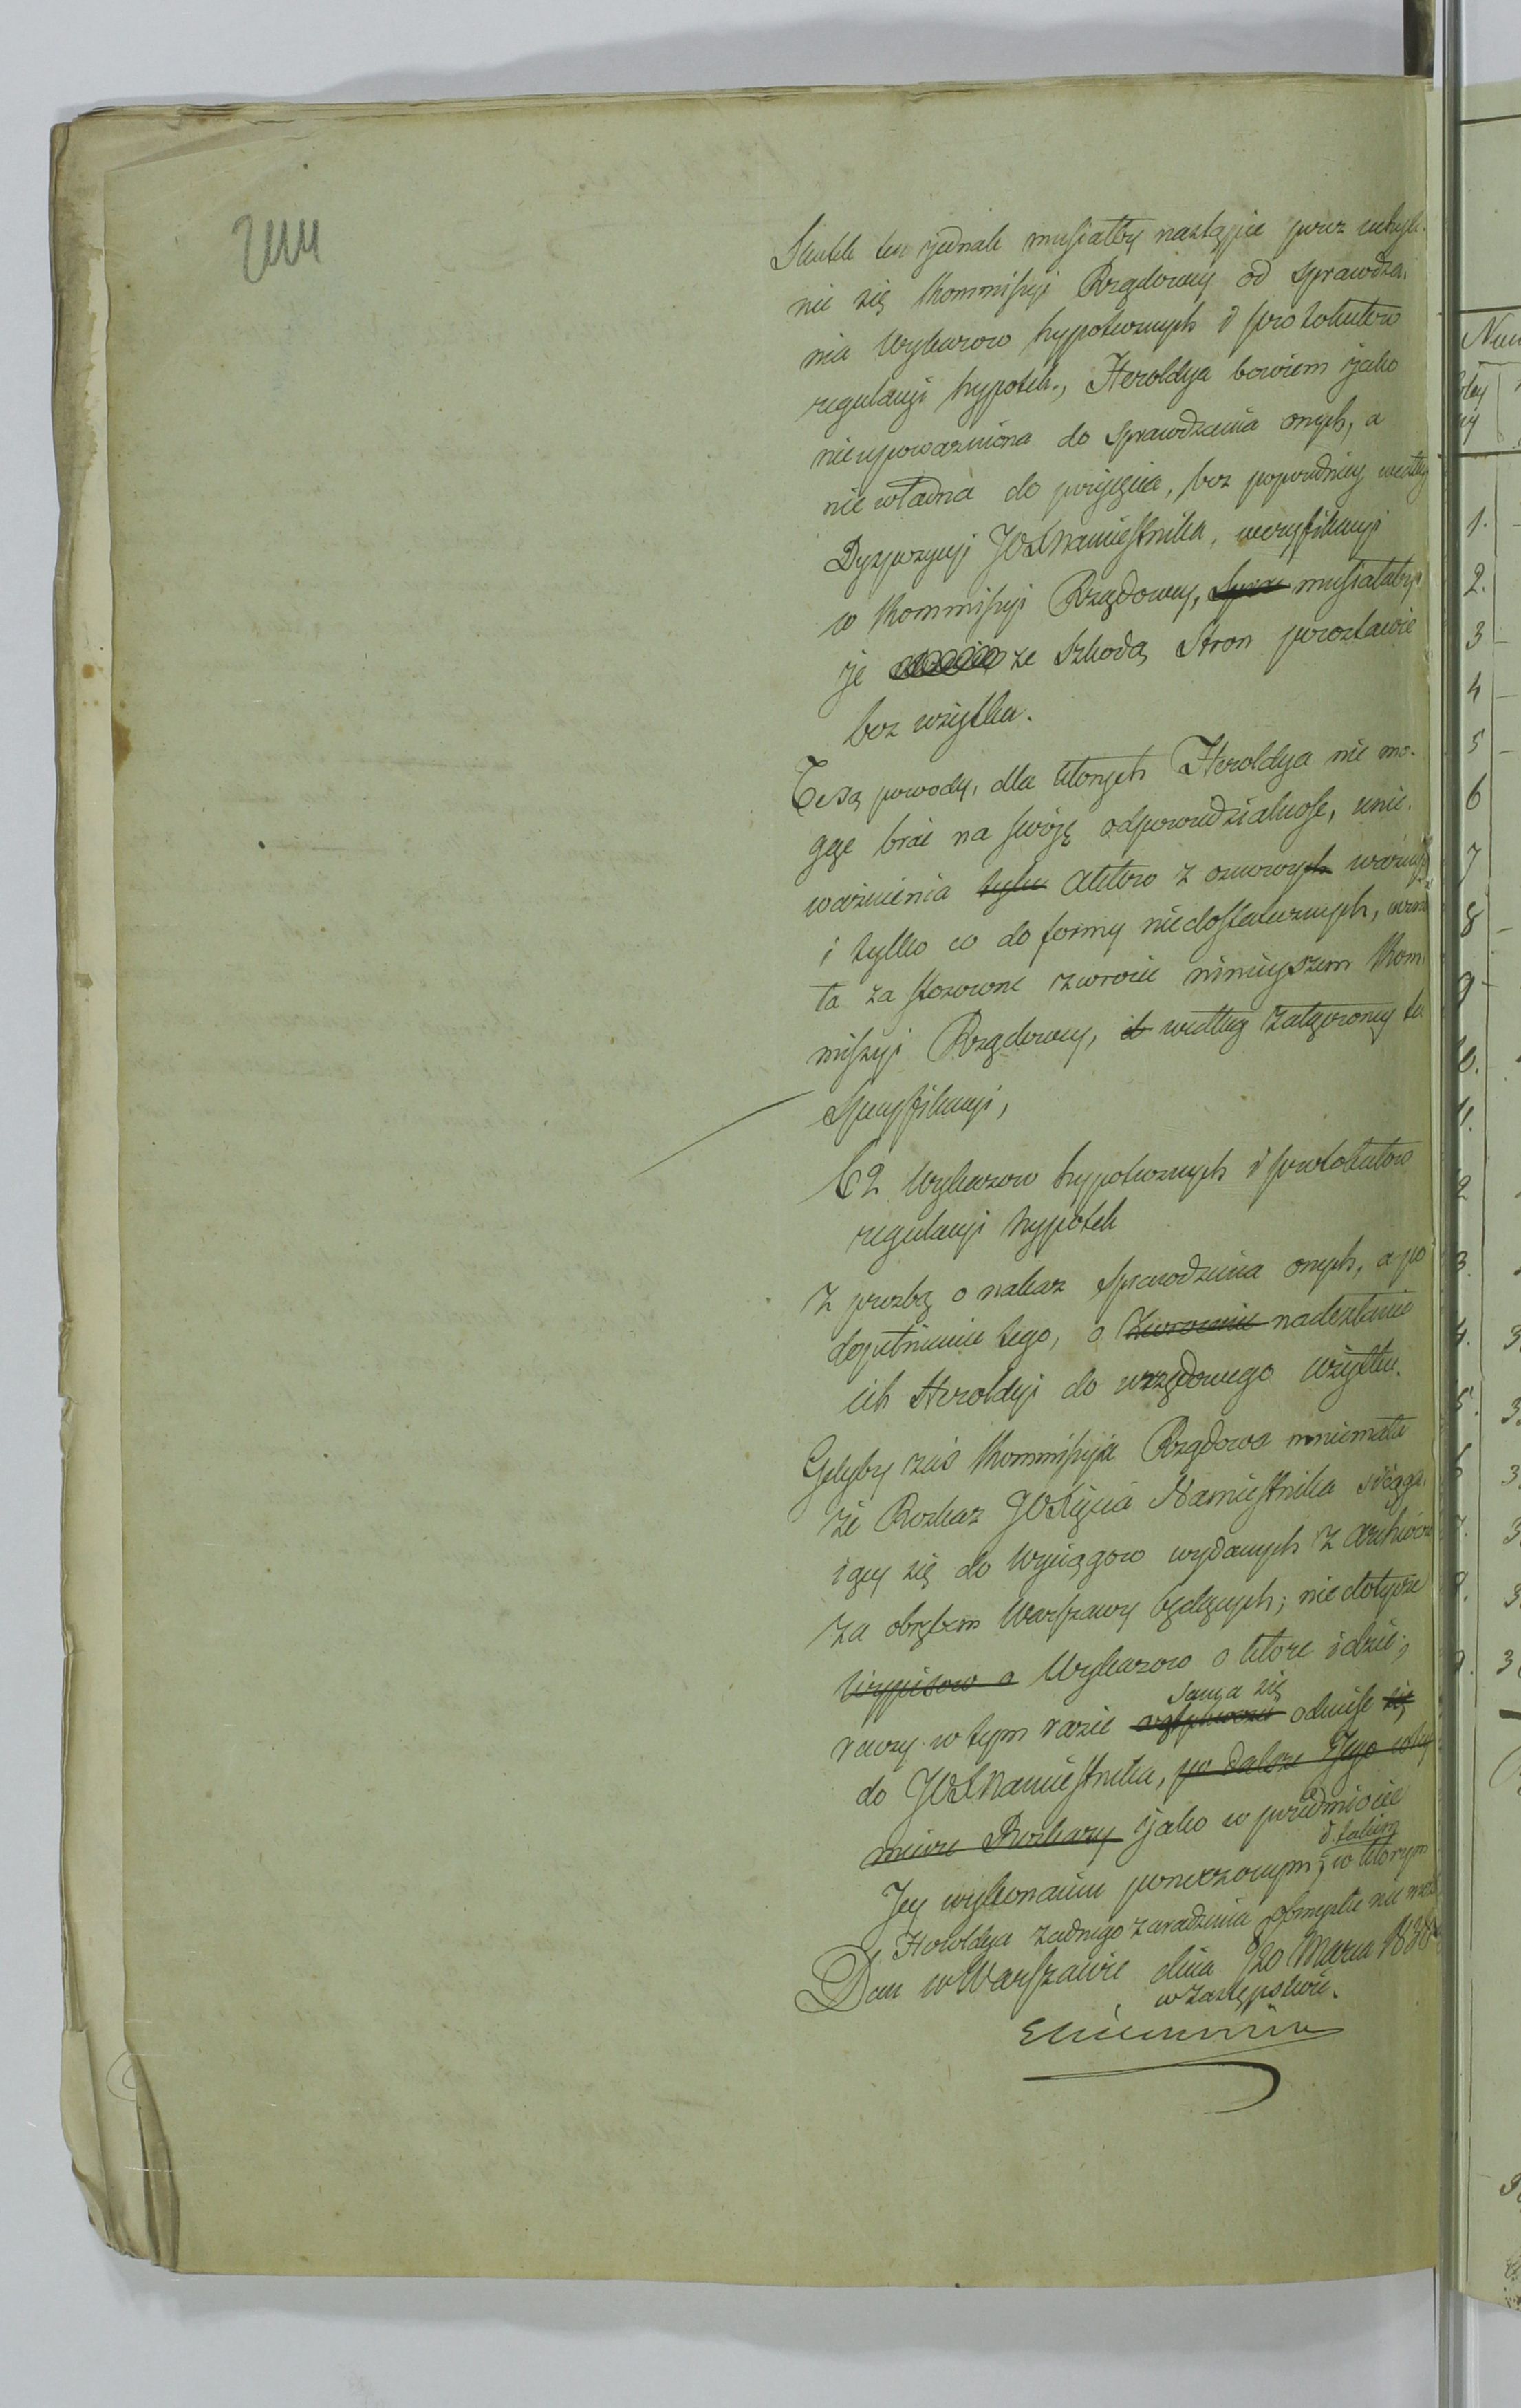 Skutek ten jednak musiałby nastąpić przez uchyle-
nie się Kommissyi Rządowey od sprawdze-
nia Wykazow hyppotecznych i protokułów
regulacyi hyppotek., Heroldya bowiem jako
nieupoważniona do sprawdzenia onych, a
nie władna do przyjęcia, bez poprzedniey według
Dyspozycyi JOXNamiestnika, weryfikacyi
w Kommissyi Rządowey, musiałaby
je ze szkodą Stron pozostawić
bez użytku.
Te są powody, dla ktorych Heroldya nie mo-
gąc brać na swoję odpowiedzialność, unie-
ważnienia tylu Aktow z osnowy ważnych
i tylko co do formy niedostatecznych, uzna
ła za stosowne zwrócić ninieyszem Kom
missyi Rządowey, według załączoney tu
Specyfikacyi,
62 Wykazow hyppotecznych i protokułów
regulacyi hyppotek
z prozbą o nakaz sprawdzenia onych, a po
dopełnieniu tego, o zwrocenie nadesłanie
ich Heroldyi do urzędowego użytku.
Gdyby zaś Kommissyja Rządowa mniemała
że Rozkaz JOXięcia Namiestnika ściąga-
iący się do Wyciągow wydanych z Archiwów
za obrębem Warszawy będących; nie dotycze
Wypisow a Wykazow o ktore idzie;
sama się
raczy w tym razie odnieść się
do JOXNamiestnika, po dalsze Jego
Rozkazy jako w przedmiocie
i takim
Jey wykonaniu poruczonym, w ktorym
Heroldya żadnego zaradzenia obmyślić nie może
Dan w Warszawie dnia 8/20 Marca 1838
w zastępstwie.